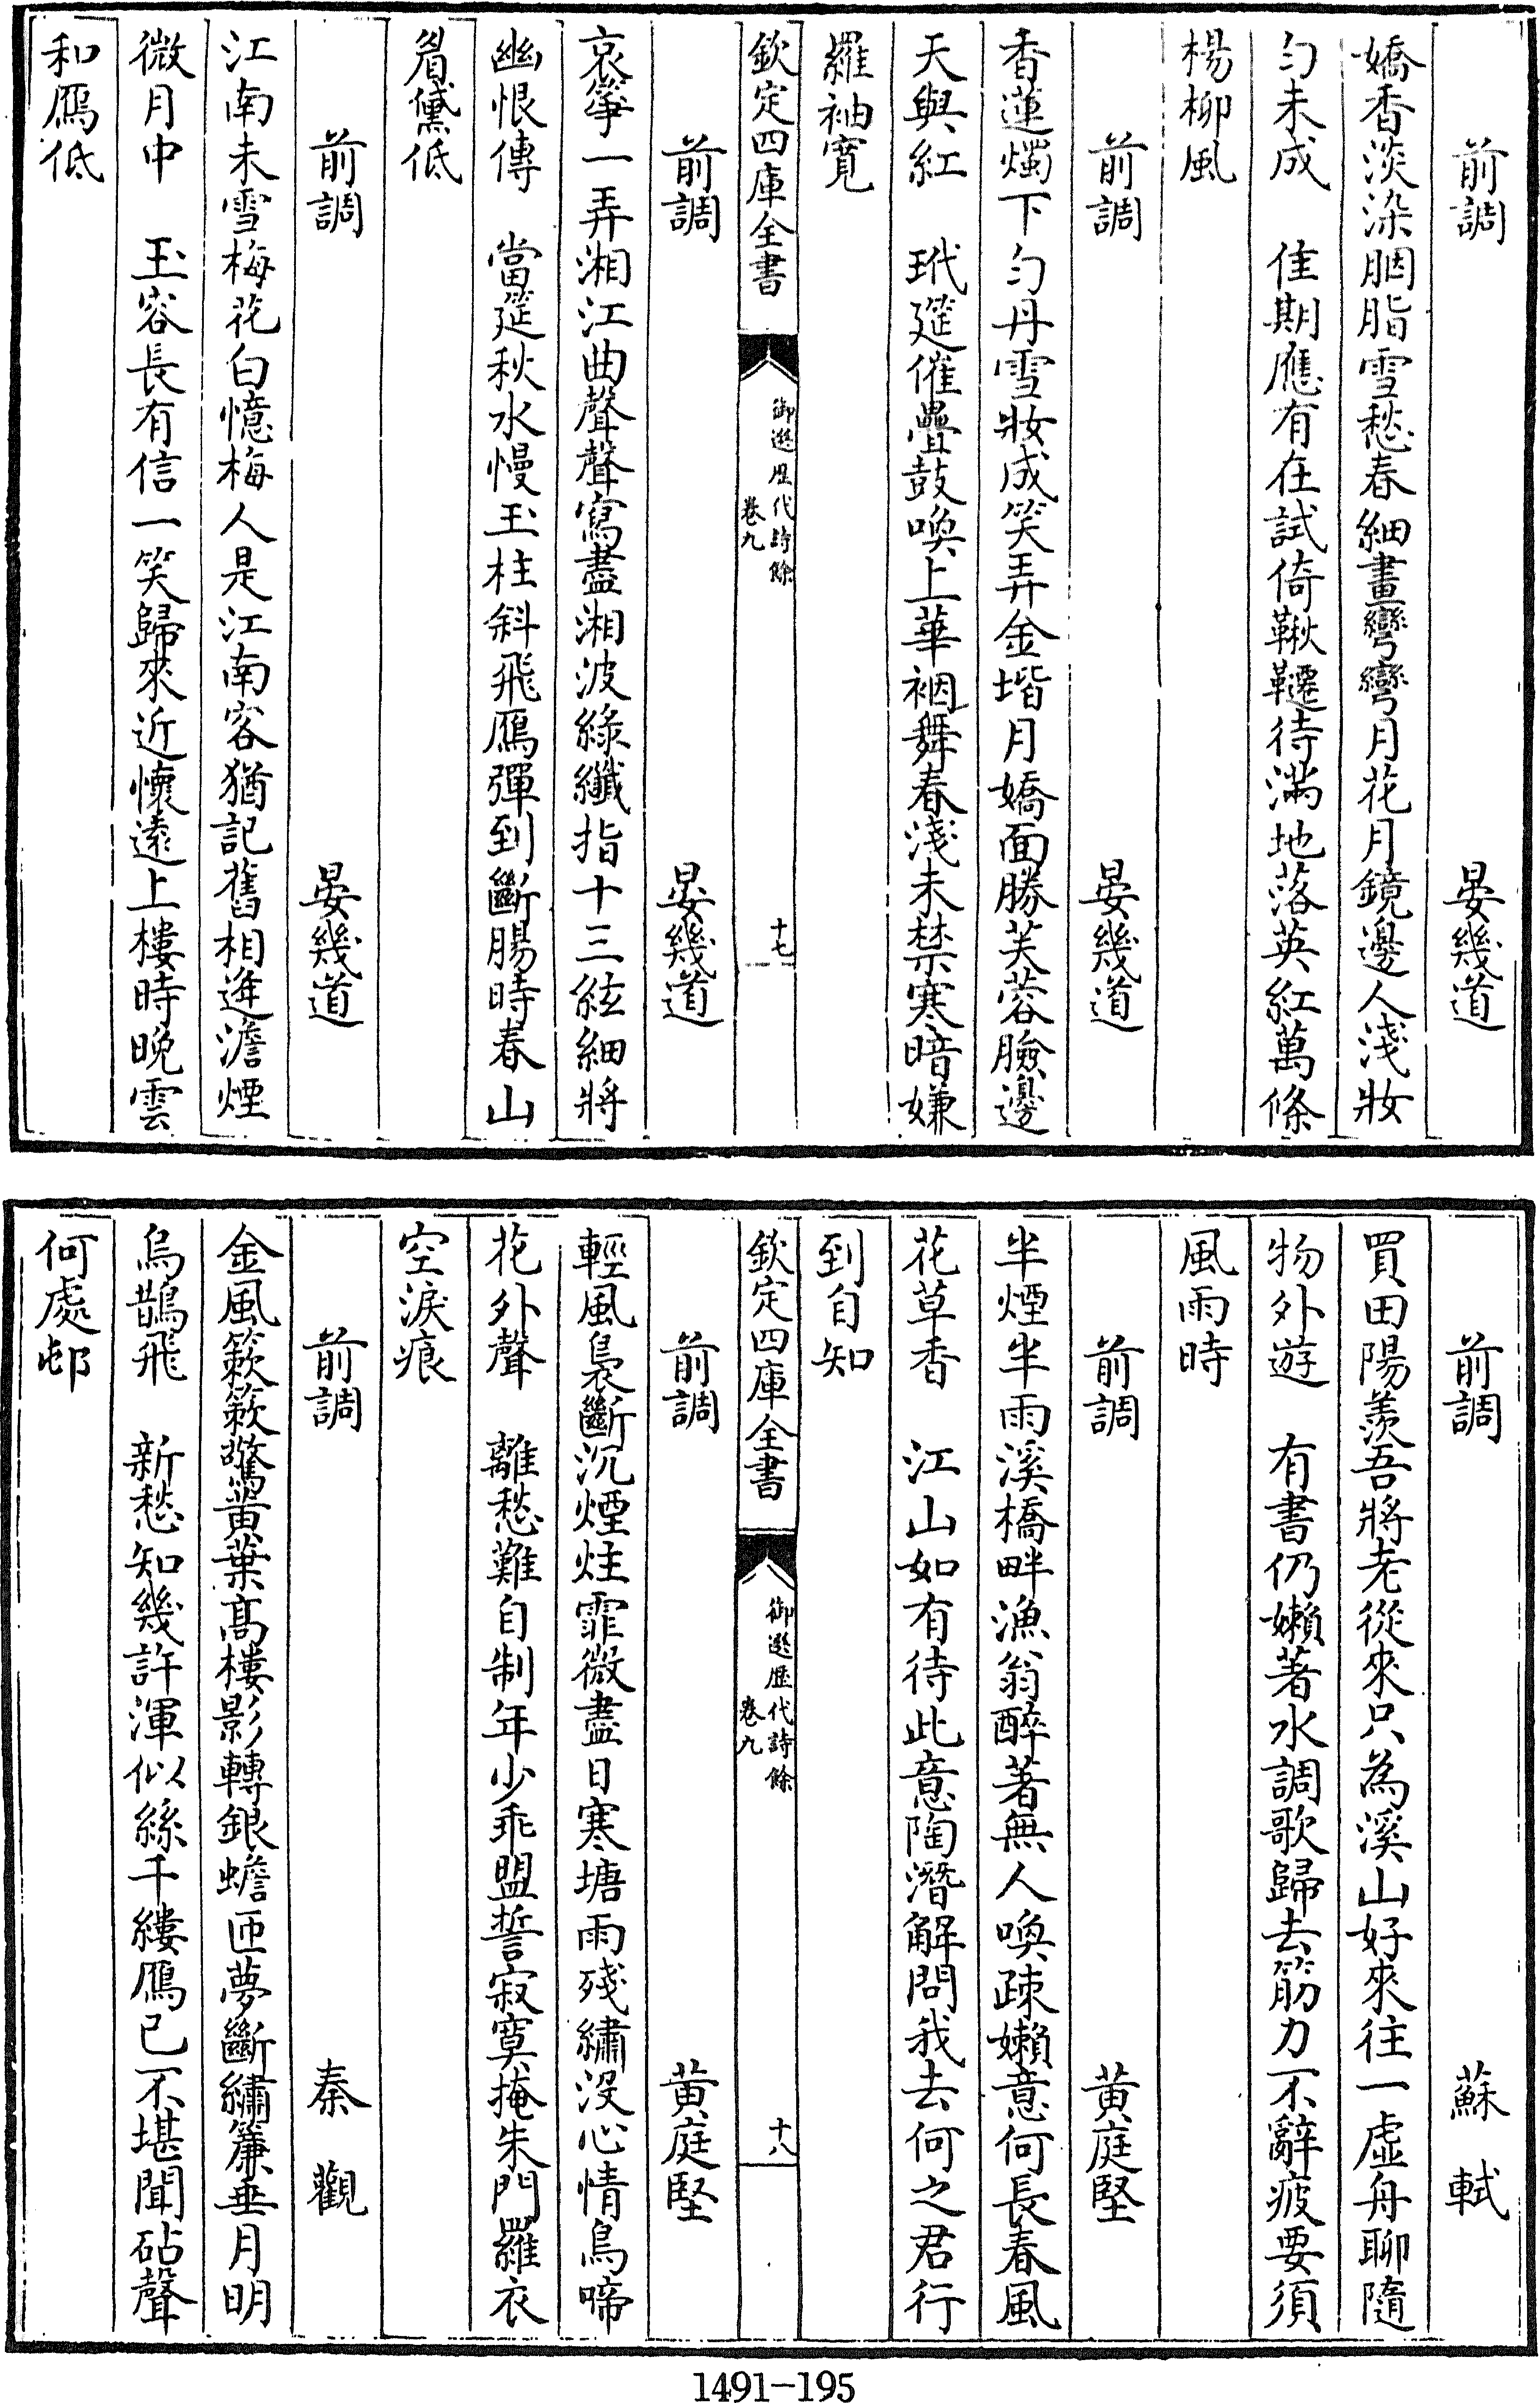 前調　晏幾道
嬌香淡染胭脂雪愁春細畫彎彎月花月鏡邊人淺妝
勻未成　佳期應有在試倚鞦韆待滿地落英紅萬條
楊柳風
前調　晏幾道
香蓮燭下勻丹雪妝成笑弄金堦月嬌面勝芙蓉臉邊
天與紅　玳筵催疊鼓喚上華裀舞春淺未禁寒暗嫌
羅袖寬
欽定四庫全書　御選歷代詩餘　卷九　十七
前調　晏幾道
哀箏一弄湘江曲聲聲寫盡湘波綠纖指十三絃細將
幽恨傳　當筵秋水慢玉柱斜飛鴈彈到斷腸時春山
眉黛低
前調　晏幾道
江南未雪梅花白憶梅人是江南客猶記舊相逢澹煙
微月中　玉容長有信一笑歸來近懷遠上樓時晚雲
和鴈低
前調　蘇軾
買田陽羨吾將老從來只為溪山好來往一虛舟聊隨
物外遊　有書仍嬾著水調歌歸去筋力不辭疲要須
風雨時
前調　黃庭堅
半煙半雨溪橋畔漁翁醉著無人喚疎嬾意何長春風
花草香　江山如有待此意陶潛解問我去何之君行
到自知
欽定四庫全書　御選歷代詩餘　卷九　十八
前調　黃庭堅
輕風裊斷沉煙炷霏微盡日寒塘雨殘繡沒心情鳥啼
花外聲　離愁難自制年少乖盟誓寂寞掩朱門羅衣
空淚痕
前調　秦觀
金風簌簌驚黃葉高樓影轉銀蟾匝夢斷繡簾垂月明
烏鵲飛　新愁知幾許渾似絲千縷鴈已不堪聞砧聲
何處邨
1491-195